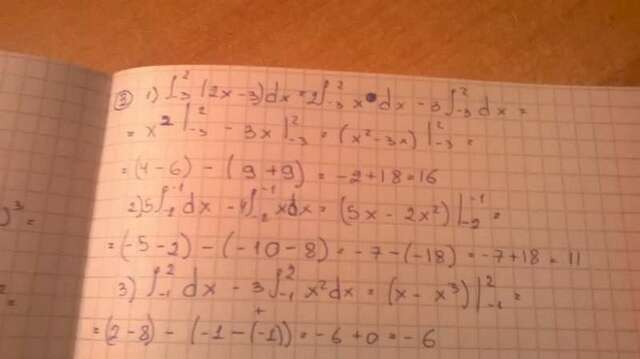 ③ 1) ∫₋₃² (2x-3)dx = 2∫₋₃² x dx - 3∫₋₃² dx =
= x² |₋₃² - 3x |₋₃² = (x²-3x) |₋₃² =
= (4-6) - (9+9) = -2+18=16
2) 5∫₋₂⁻¹ dx - 4∫₋₂⁻¹ xdx = (5x - 2x²) |₋₂⁻¹ =
)³ =
= (-5-2) - (-10-8) = -7-(-18) = -7+18 = 11
3) ∫₋₁² dx - 3∫₋₁² x²dx = (x - x³) |₋₁² =
=
= (2-8) - (-1-(-1)) = -6+0 = -6